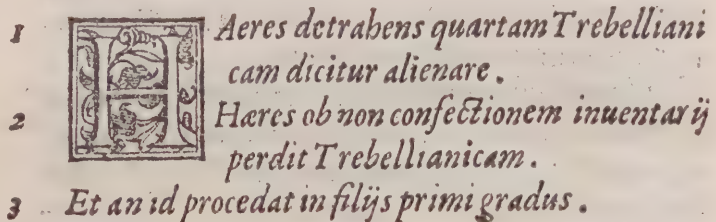 1 HAeres detrahens quartam Trebelliani
cam dicitur alienare.
2 Hæres ob non confectionem inuentarij
perdit Trebellianicam.
3 Et an id procedat in filijs primi gradus.